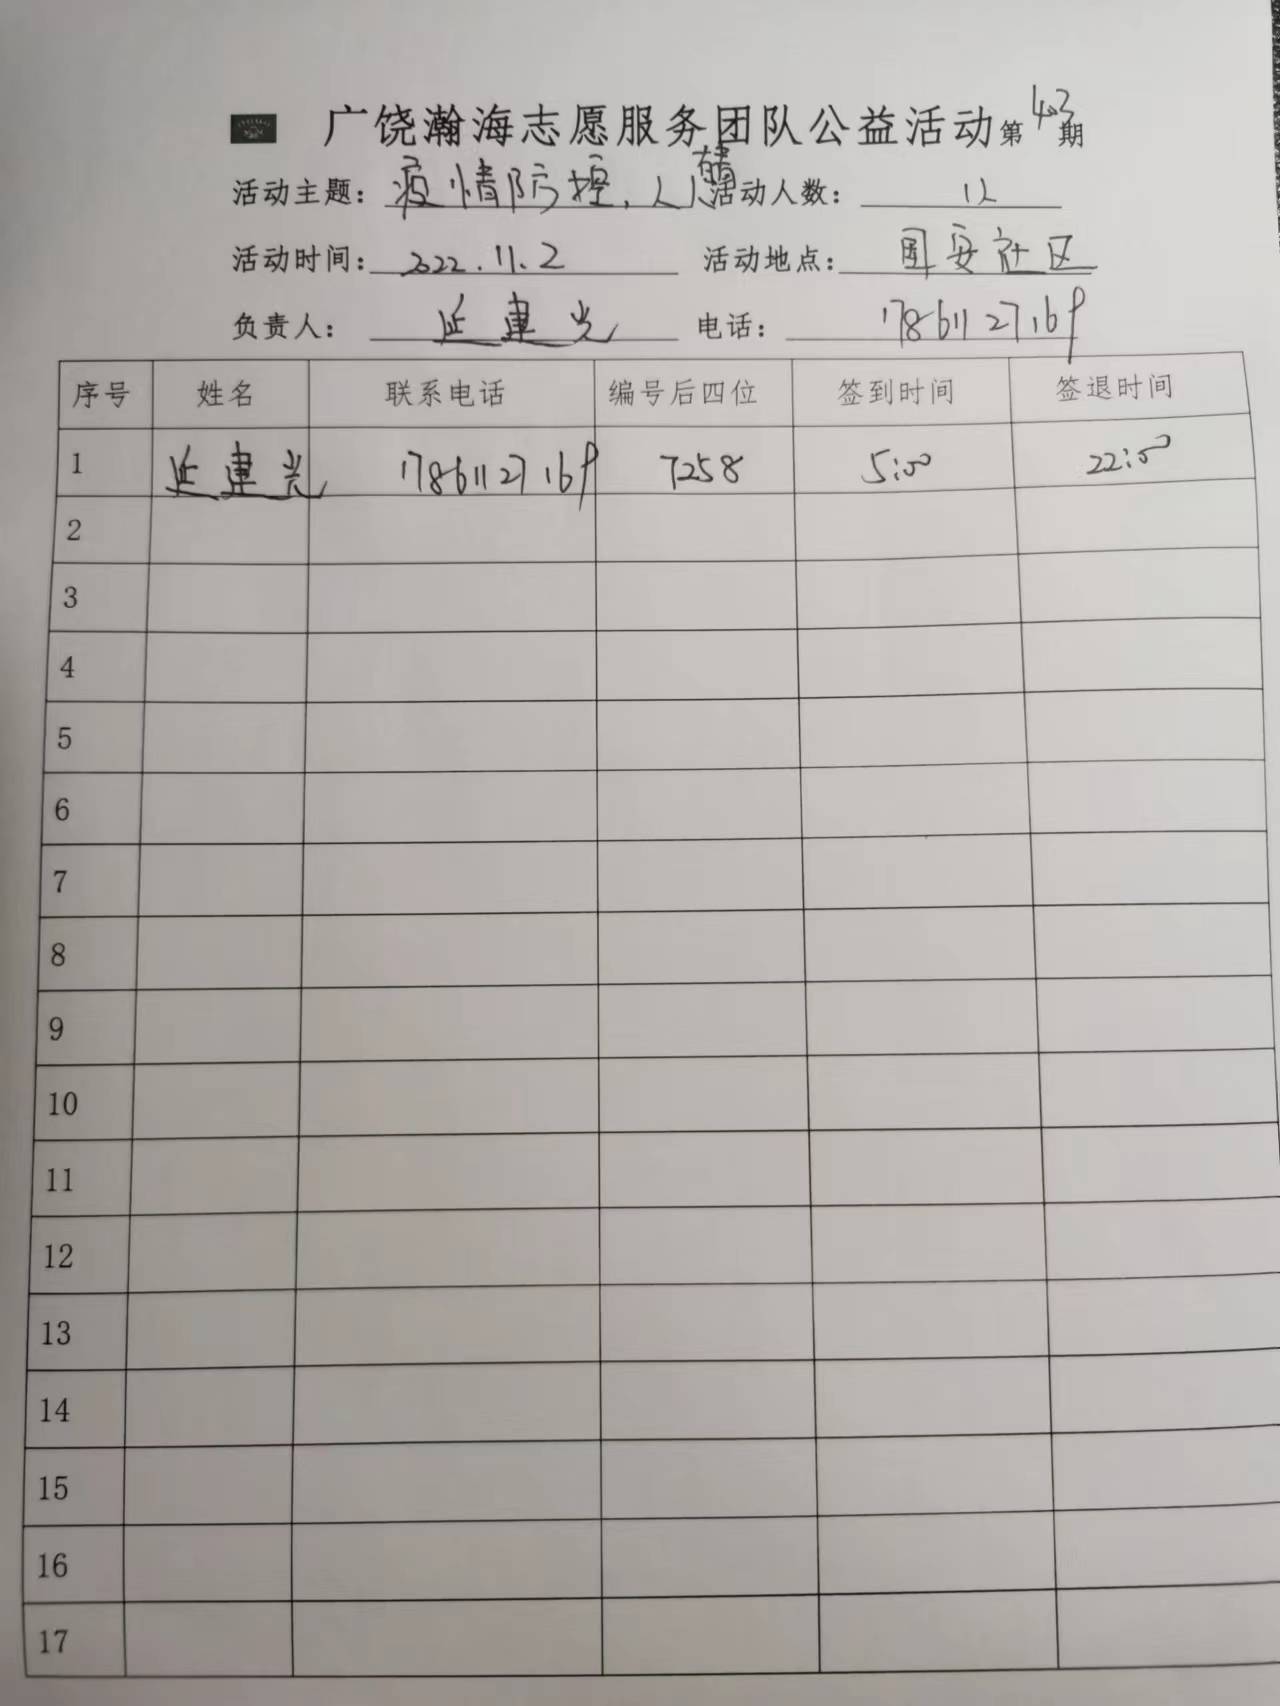 广饶瀚海志愿服务团队公益活动第403期
活动主题：疫情防控，人人有责 活动人数：1人
活动时间：2022.11.2 活动地点：国安社区
负责人：延建光 电话：17861127169
序号 姓名 联系电话 编号后四位 签到时间 签退时间
1 延建光 17861127169 7258 5:00 22:00
2
3
4
5
6
7
8
9
10
11
12
13
14
15
16
17